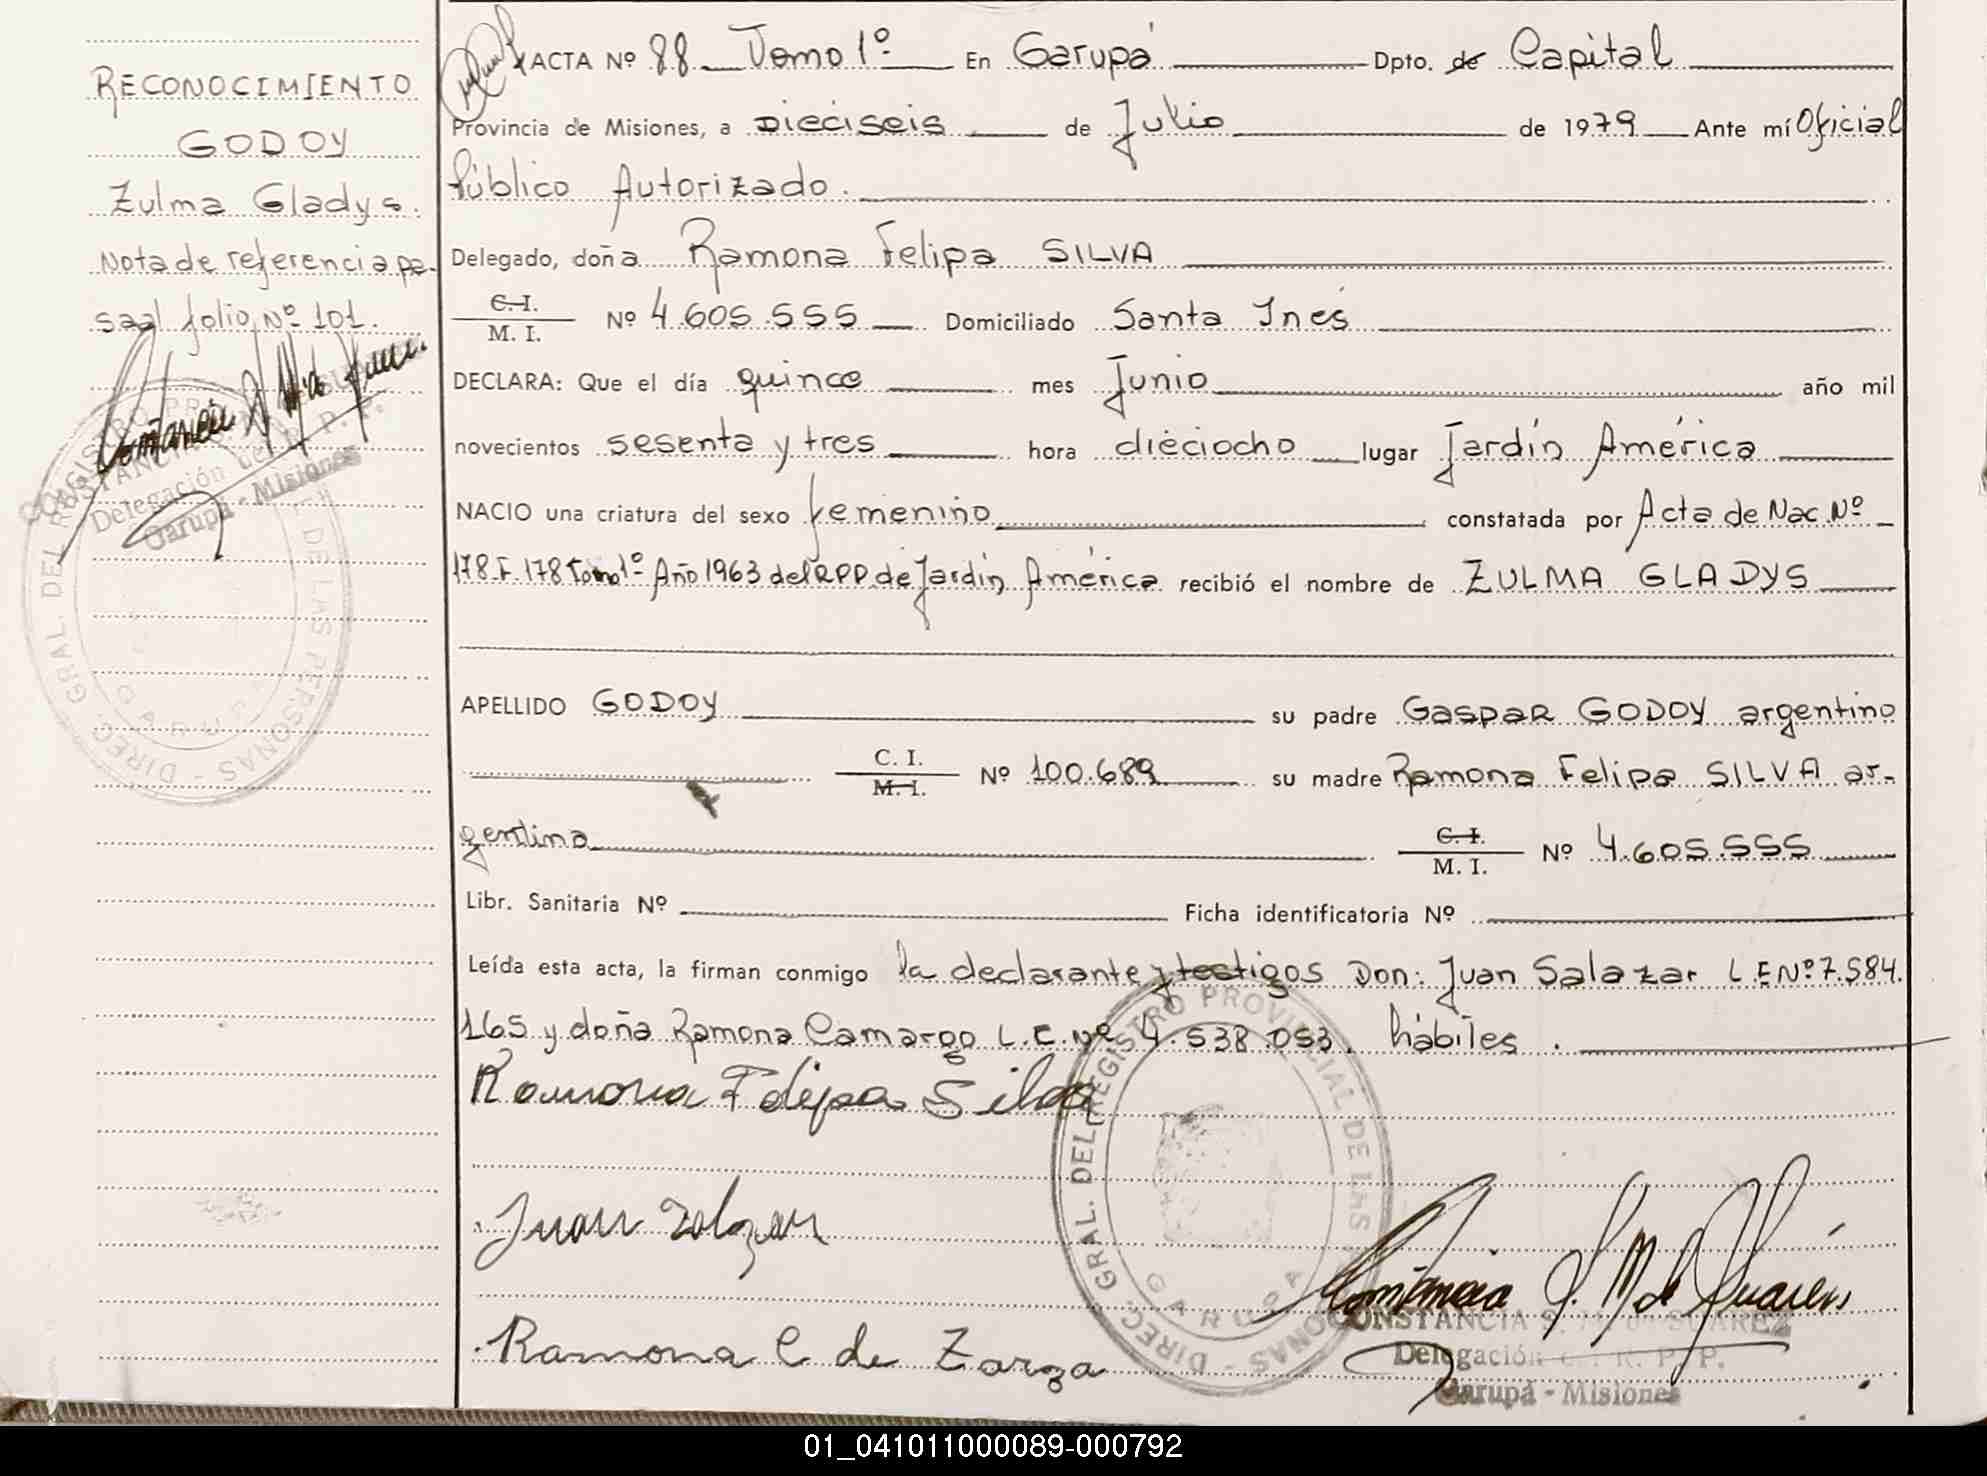 RECONOCIMIENTO
GODOY
Zulma Gladys.
Nota de referencia pa-
sa al folio Nº 101.
ACTA Nº 88 Tomo 1º En Garupá Dpto. de Capital
Provincia de Misiones, a Dieciseis de Julio de 1979 Ante mí Oficial
Público Autorizado.
Delegado, doña Ramona Felipa SILVA
C. I.
M. I. Nº 4.605.555 Domiciliado Santa Inés
DECLARA: Que el día quince mes Junio año mil
novecientos sesenta y tres hora dieciocho lugar Jardín América
NACIO una criatura del sexo femenino constatada por Acta de Nac. Nº
178 F. 178 Tomo 1º Año 1963 del RPP de Jardín América recibió el nombre de ZULMA GLADYS
APELLIDO GODOY su padre Gaspar GODOY argentino
C. I.
M. I. Nº 100.689 su madre Ramona Felipa SILVA ar-
gentina C. I.
M. I. Nº 4.605.555
Libr. Sanitaria Nº Ficha identificatoria Nº
Leída esta acta, la firman conmigo la declarante y testigos Don: Juan Salazar L.E Nº 7.584.
165 y doña Ramona Camargo L.C. Nº 4.538.053. hábiles.
Ramona Felipa Silva
Juan Zalazar
Ramona C de Zarza
DIREC. GRAL. DEL REGISTRO PROVINCIAL DE LAS PERSONAS
GARUPA
CONSTANCIA S. M. de SUAREZ
Delegación del R. P. P.
Garupá - Misiones
DIREC. GRAL. DEL REGISTRO DE LAS PERSONAS
GARUPA
Delegación del R. P. P.
Garupá - Misiones
01_041011000089-000792